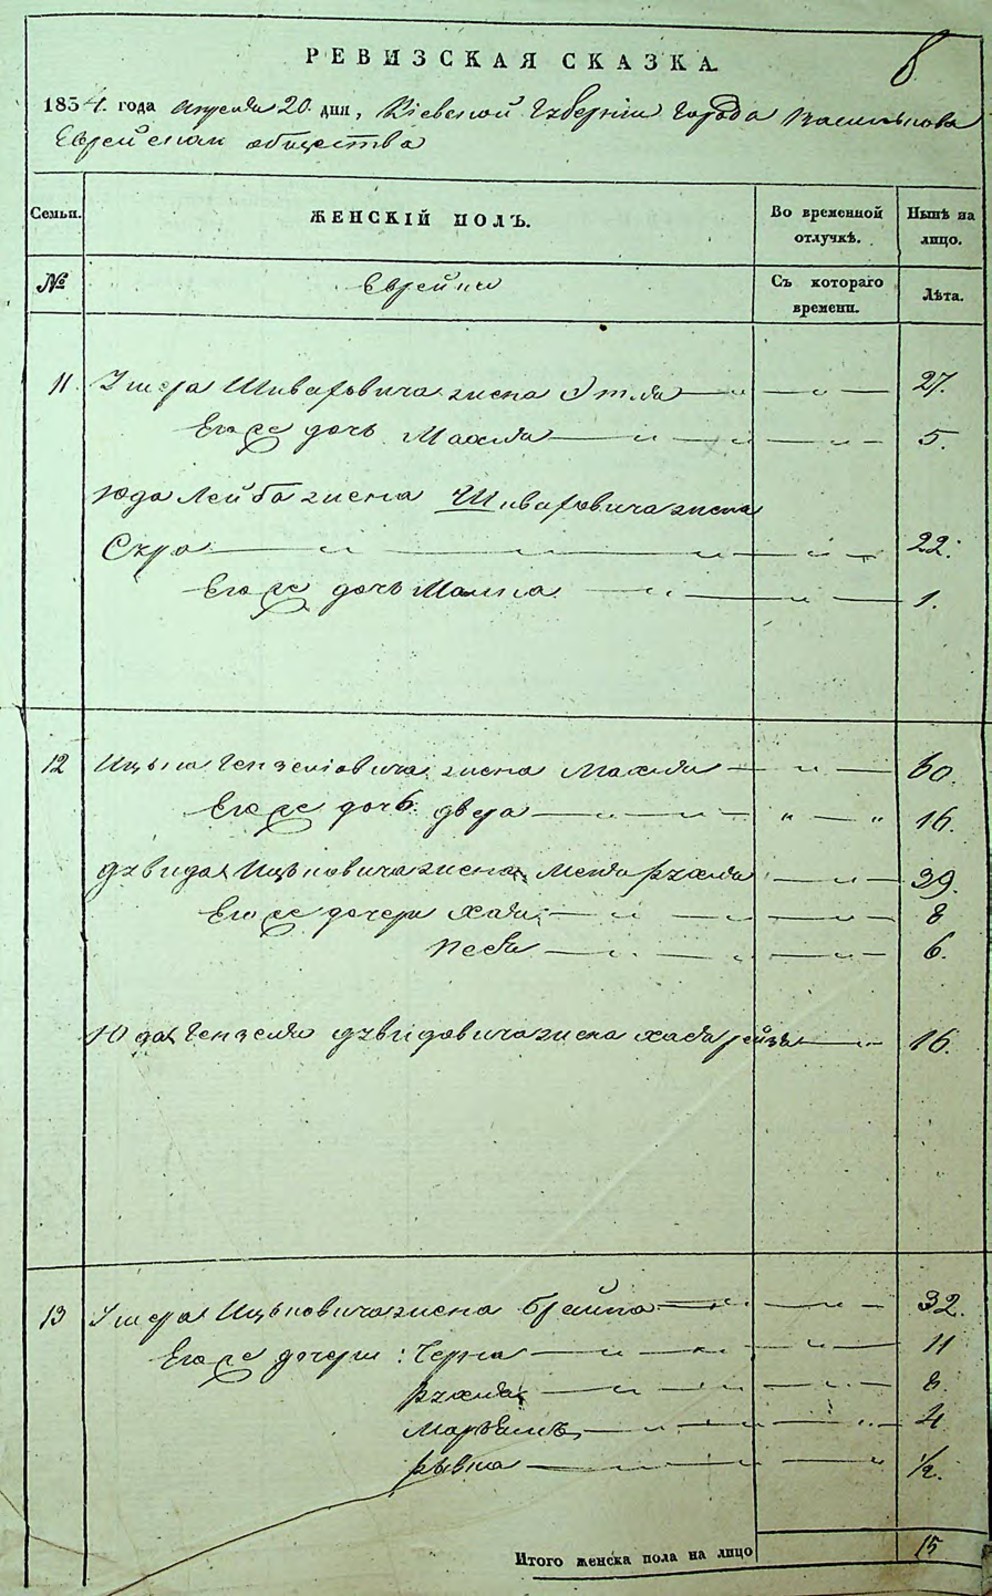 8
РЕВИЗСКАЯ СКАЗКА
1854. года Апреля 20. дня, Кіевской Губерніи города Василькова
Еврейском общества
Семьи. ЖЕНСКІЙ ПОЛЪ. Во временной отлучкѣ. Нынѣ на лицо.
№ Еврейки Съ котораго времени. Лѣта.
11. Ушера Шиваровича жена Этля — „ — „ — 27.
Его же дочь Махля — „ — „ — „ — 5.
Юда Лейба жена Шиваровича жена
Сура — „ — „ — „ — 22.
Его же дочь Малка — „ — „ — 1.
12 Ицька Гензелювича жена Махля — „ — 60.
Его же дочь Двера — „ — „ — „ — „ 16.
Дувида Ицьковича жена Меня Рухля — „ — 39.
Его же дочери Хая — „ — „ — „ — 8
Песя — „ — „ — „ — 6.
Юда Гензеля Дувидовича жена Хася Рейза — „ 16.
13 Ушера Ицьковича жена Брайна — „ — „ — 32.
Его же дочери: Черна — „ — „ — „ — 11
Рухля — „ — „ — „ — 8.
Марьемъ — „ — „ — „ — 4
Рывка — „ — „ — „ 1/2.
Итого женска пола на лицо 15